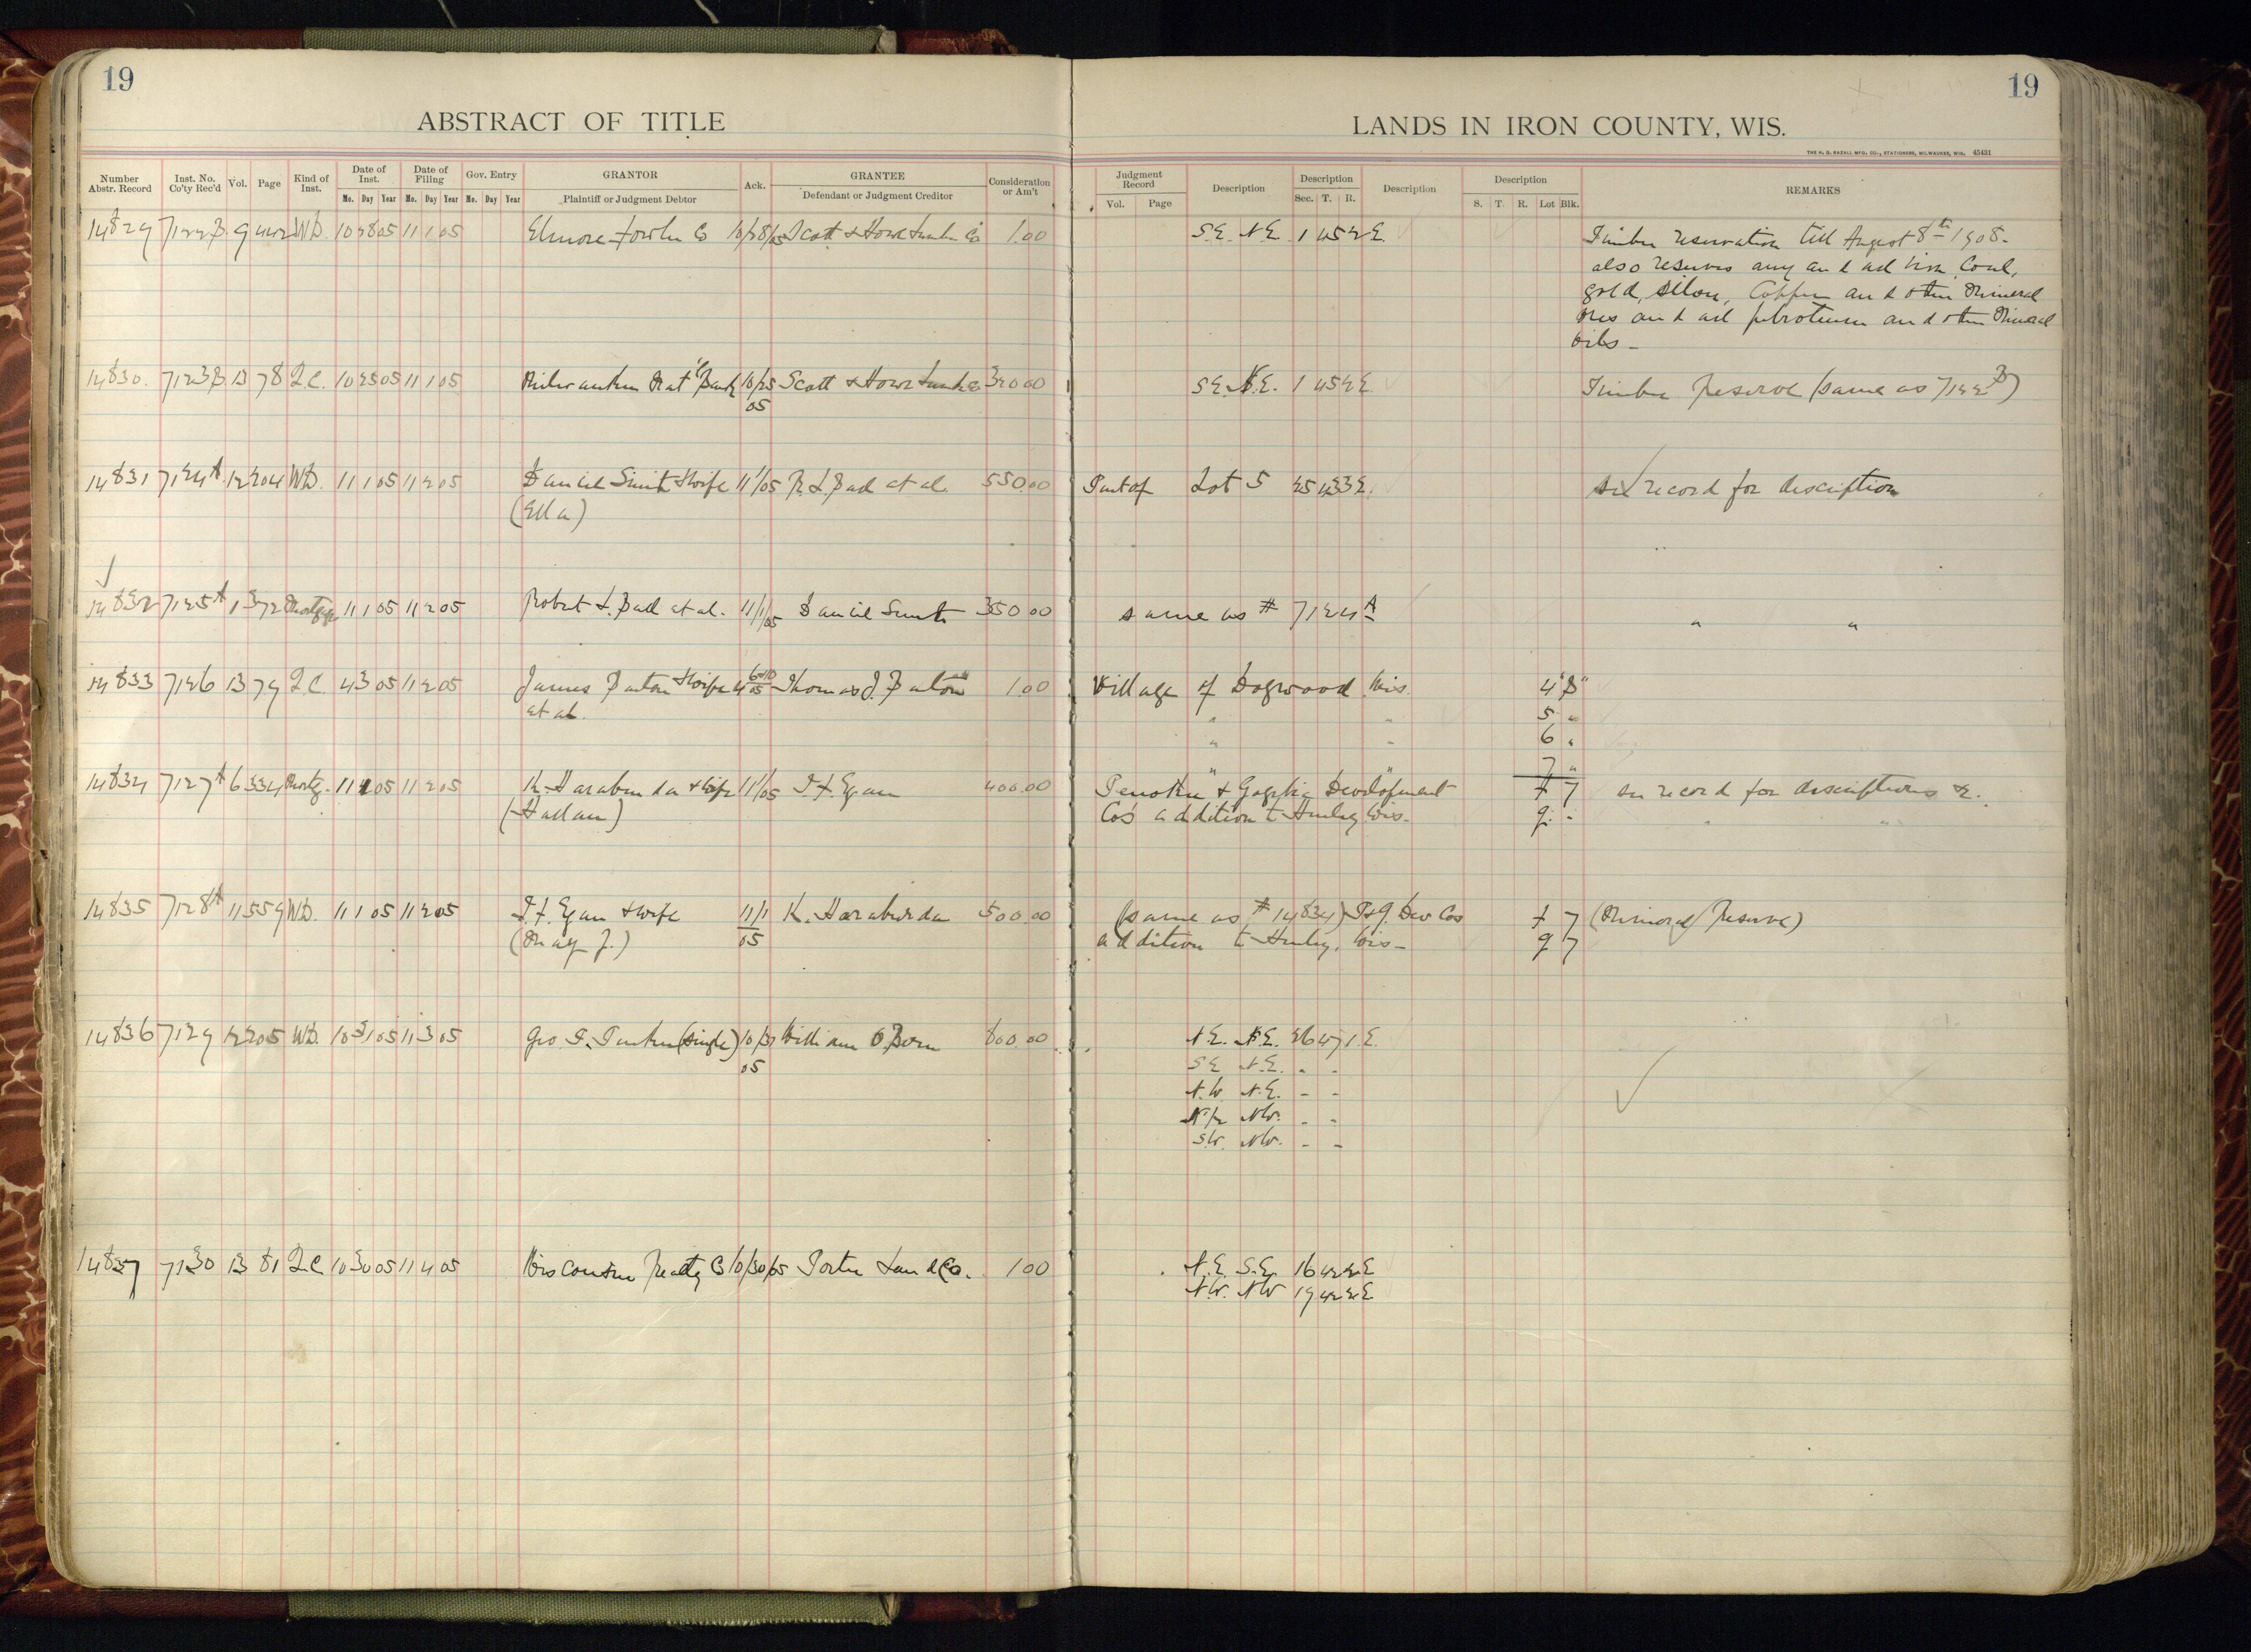 19
19
ABSTRACT OF TITLE
LANDS IN IRON COUNTY, WIS.
THE H. G. RAZALL MFG. CO., STATIONERS, MILWAUKEE, WIS. 45421
Number Abstr. Record
Inst. No. Co'ty Rec'd
Vol.
Page
Kind of Inst.
Date of Inst.
Date of Filing
Gov. Entry
GRANTOR
Plaintiff or Judgment Debtor
Ack.
GRANTEE
Defendant or Judgment Creditor
Consideration or Am't
Judgment Record
Description
Description
Description
Description
REMARKS
Mo. Day Year Mo. Day Year Mo. Day Year
Vol. Page
Sec. T. R.
S. T. R. Lot Blk.
14829 7122B 9 442 W.D. 10 28 05 11 1 05 Elmore-Fowler Co 10/28/05 Scott & Howe Lumber Co 1.00 S.E. N.E. 1 45 2 E. Timber reservation till August 8th 1908.
also reserves any and all iron, Coal,
gold, silver, Copper and other Mineral
Ores and all petroleum and other Mineral
Oils -
14830. 7123B 13 78 Q.C. 10 25 05 11 1 05 Milwaukee Nat'l Bank 10/25 05 Scott & Howe Lumber Co 320.00 S.E. N.E. 1 45 2 E. Timber Reserve (same as 7122B)
14831 7124A 12 204 W.D. 11 1 05 11 2 05 Daniel Smith & wife 11/1/05 R. L. Ball et al. 550.00 Part of Lot 5 25 43 3 E. see record for description
(Ella)
14832 7125A 1 372 Mortgage 11 1 05 11 2 05 Robert L. Ball et al. 11/1/05 Daniel Smith 350.00 same as # 7124A " "
14833 7126 13 79 Q.C. 4 3 05 11 2 05 James Barton & wife Thomas J. Barton 1.00 Village of Dogwood Wis. 4 "B"
et al. " " 5 "
" " 6 "
" " 7 "
14834 7127A 6 334 Mortg. 11 1 05 11 2 05 K. Haraburda & wife 11/1/05 T. F. Egan 400.00 Penokee & Gogebic Development 7 see record for descriptions &.
(Hallan) Co's addition to Hurley Wis. 9 " " "
14835 7128A 11 559 W.D. 11 1 05 11 2 05 T. F. Egan & wife 11/1 05 K. Haraburda 500.00 (same as # 14834) P & G Dev Cos 7 (Mineral Reserve)
(May J.) addition to Hurley, Wis - 9 7
14836 7129 12 205 W.D. 10 31 05 11 3 05 Geo. F. (single) 10/31 05 William O. Born 800.00 N.E. N.E. 26 47 1 E.
S.E. N.E. " "
N.W. N.E. - -
N 1/2 N.W. - -
S.W. N.W. - -
14837 7130 13 81 Q.C. 10 30 05 11 4 05 Wisconsin Realty Co 10/30/05 Porter Land Co. 1.00 N.E. S.E. 16 42 2 E
N.W. N.W 19 42 2 E